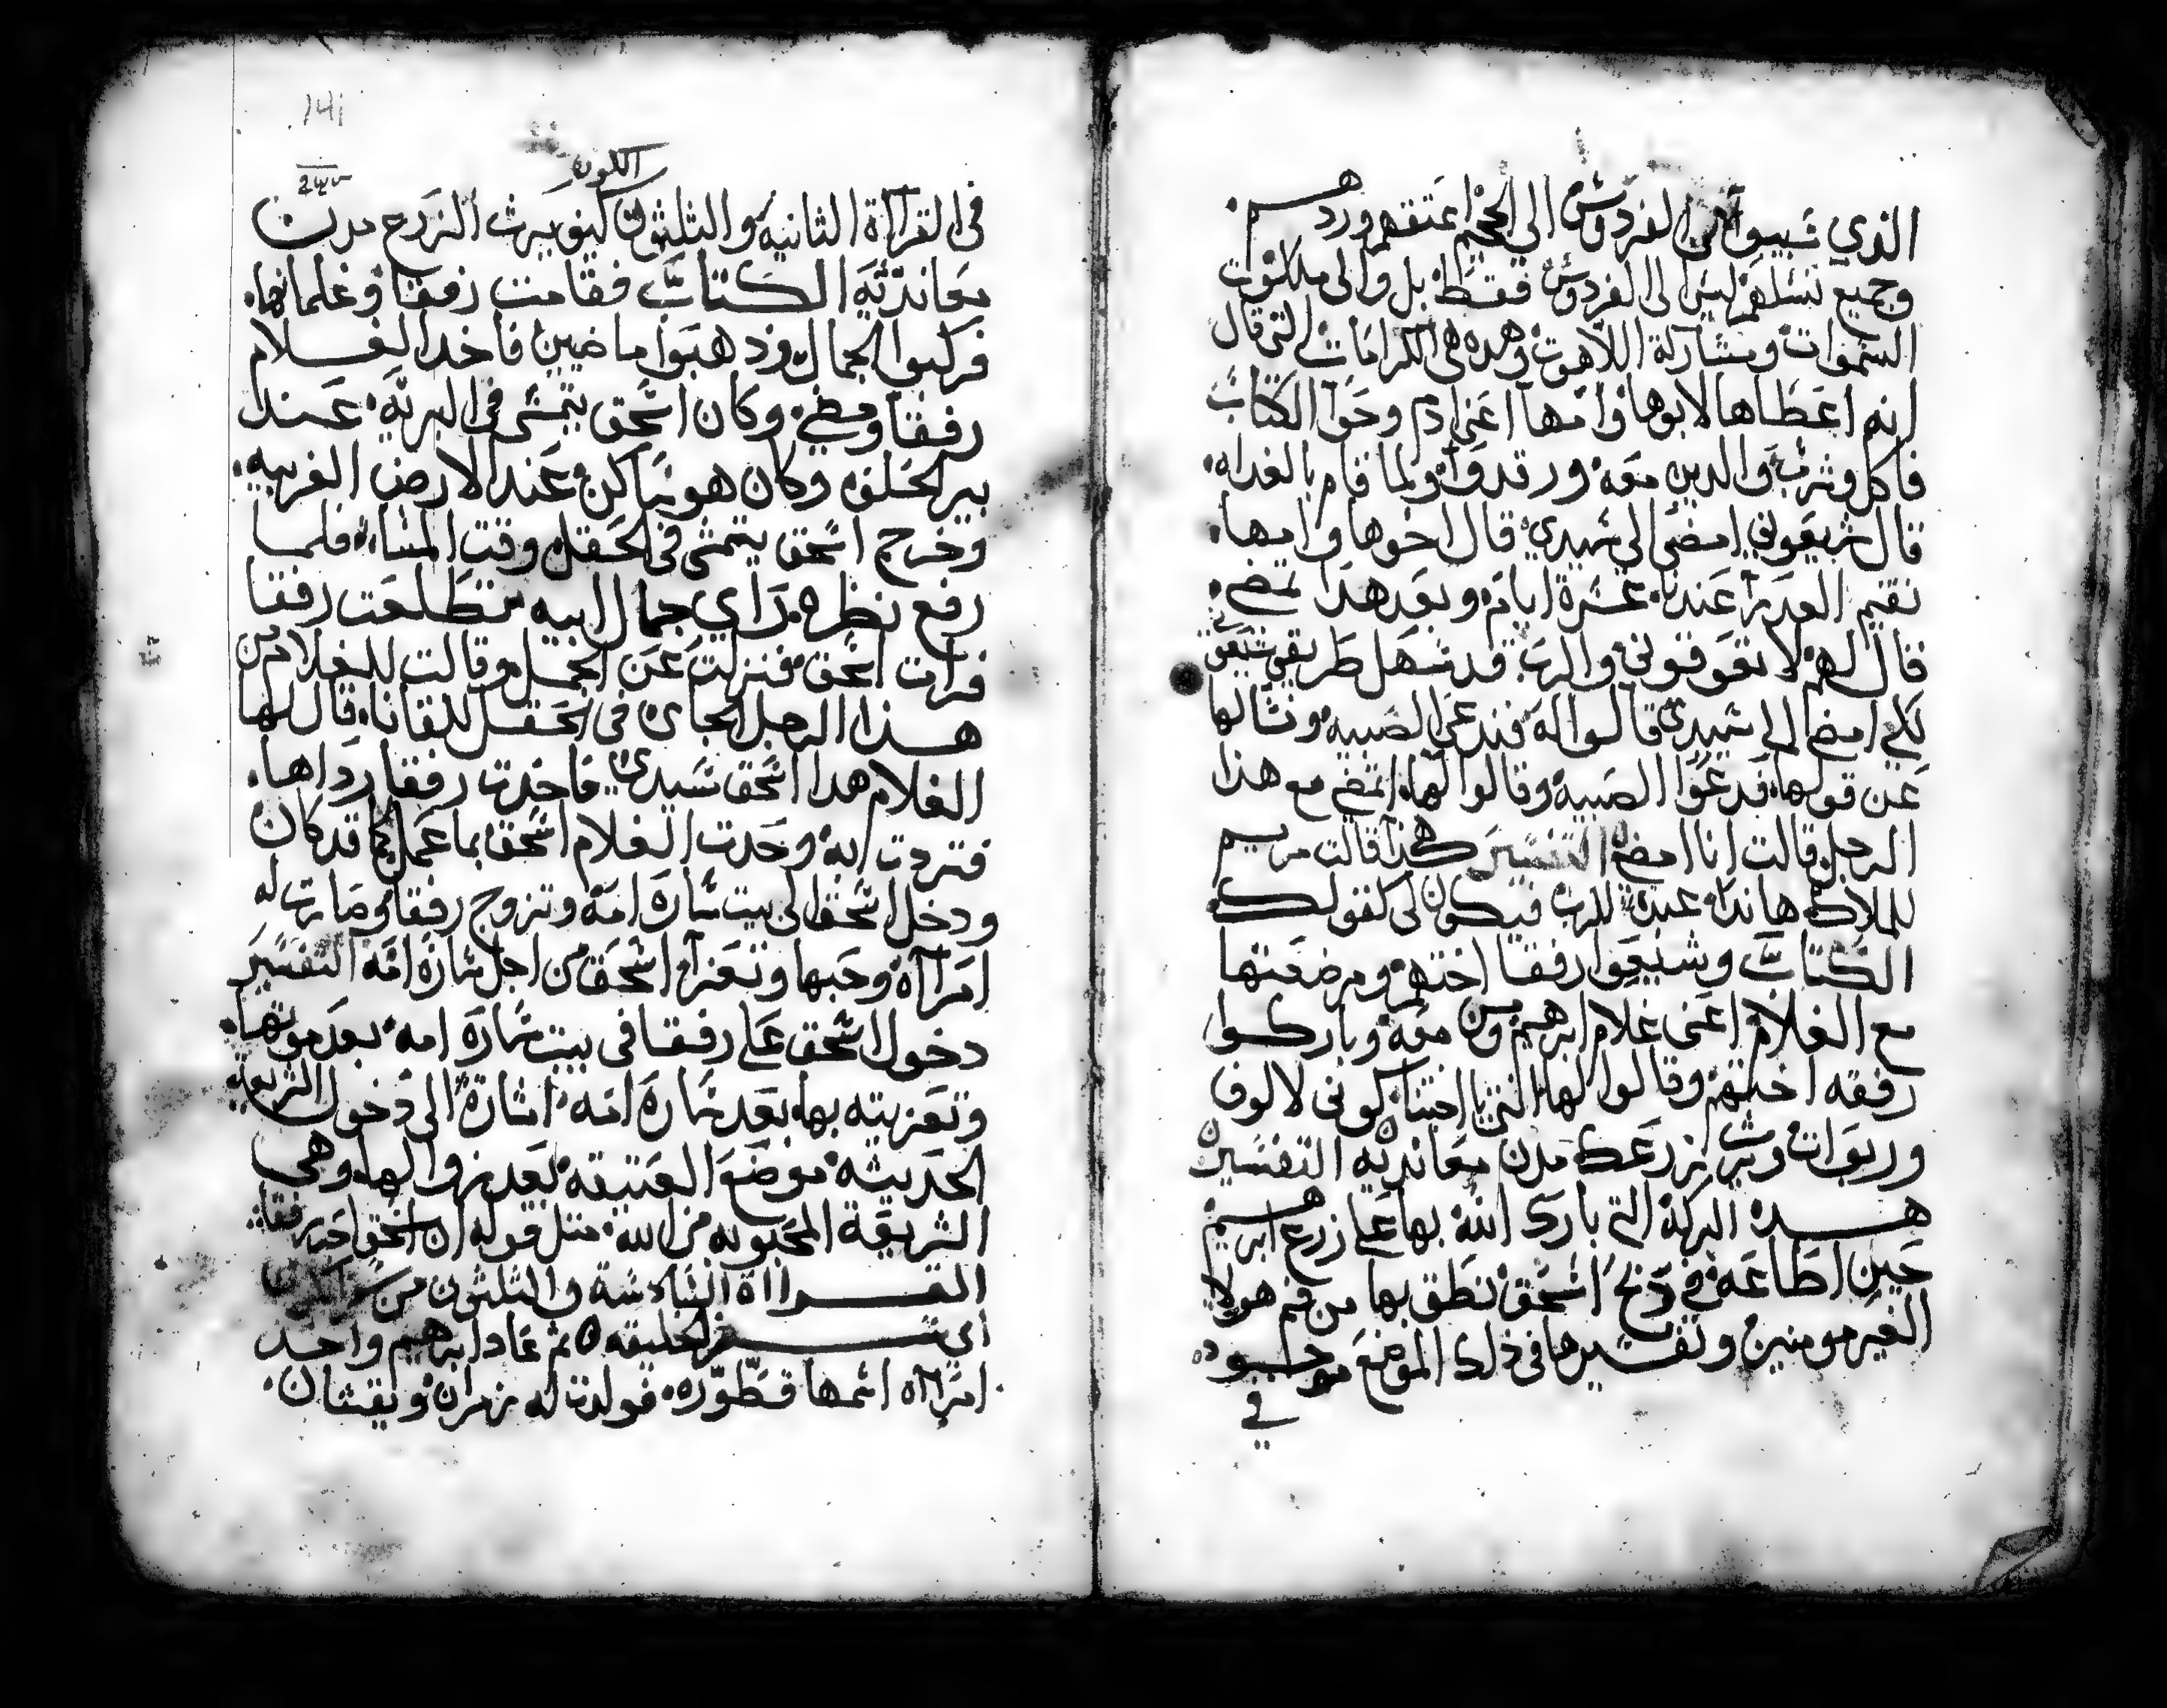 الذي سبيوا من الفردوس الى الجحيم اعتقهم وردهم
وجميع نسلهم ليس الى الفردوس فقط بل والى ملكوت
السموات ومشاركة اللاهوت وهده هي الكرامات التي قال
انه اعطاها لابوها وامها اعني ادم وحوا الكتاب
فاكل وشرب والدين معه ورقدوا ولما قام بالغداه
قال شيعوني امضي الى سيدي قال اخوها وامها
تقيم العدرا عندنا عشرة ايام وبعد هدا تمضي
قال لهم لا تعوقوني والرب قد سهل طريقي شيعوني
لكي امضي الى سيدي قالوا له فندعي الصبيه ونسالها
عن قولها فدعوا الصبيه وقالوا لها اتمضي مع هذا
الرجل قالت انا امضي التفسير هكذا قالت مريم
للملاك هاندا عبدة للرب فيكون لي كقولك
الكتاب وشيعوا رفقا اختهم ومرضعتها
مع الغلام اعني غلام ابرهيم ومن معه وباركوا
رفقه اختهم وقالوا لها انتي اختنا كوني لالوف
وربوات ويرث زرعك مدن معانديه التفسير
هده البركة التي بارك الله بها على زرع ابرهيم
حين اطاعه في دبح اسحق نطق بها من فم هولاي
الغير مومنين وتفسيرها في ذلك الموضع موجوده
في
141
اللون
في القرآاة الثانيه والثلثون كيف يرث الزرع مدن
معانديه الكتاب فقامت رفقا وغلمانها
فركبوا الجمال وذهبوا ماضين فاخد الغلام
رفقا ومضي وكان اسحق يتمشى في البريه عند
بير الحلف وكان هو ساكن عند الارض الغربيه
وخرج اسحق يتمشى في الحقل وقت المساء فلما
رفع نظره راي جمال ابيه تطلعت رفقا
فرات اسحق فنزلت عن الجمل وقالت للغلام من
هذا الرجل الجاي في الحقل للقانا قال لها
الغلام هدا اسحق سيدي فاخدت رفقا رداها
فتردت به وحدت الغلام اسحق بما عمل كما قد كان
ودخل اسحق الى بيت ساره امه وتزوج رفقا وصارت له
امراآه وحبها وتعزا اسحق من اجل ساره امه التفسير
دخول اسحق على رفقا في بيت ساره امه بعد موتها
وتعزيته بها بعد ساره امه اشارة الى دخول الشريعه
الحديثه موضع العتيقه بعد زوالها وهي
الشريعة المحبوبه من الله متل قوله ان اسحق احب رفقا
القراااة الثالثة والثلثون من
الخليقه ثم عاد ابرهيم واخد
امراآه اسمها قطوره فولدت له زمران ويقشان